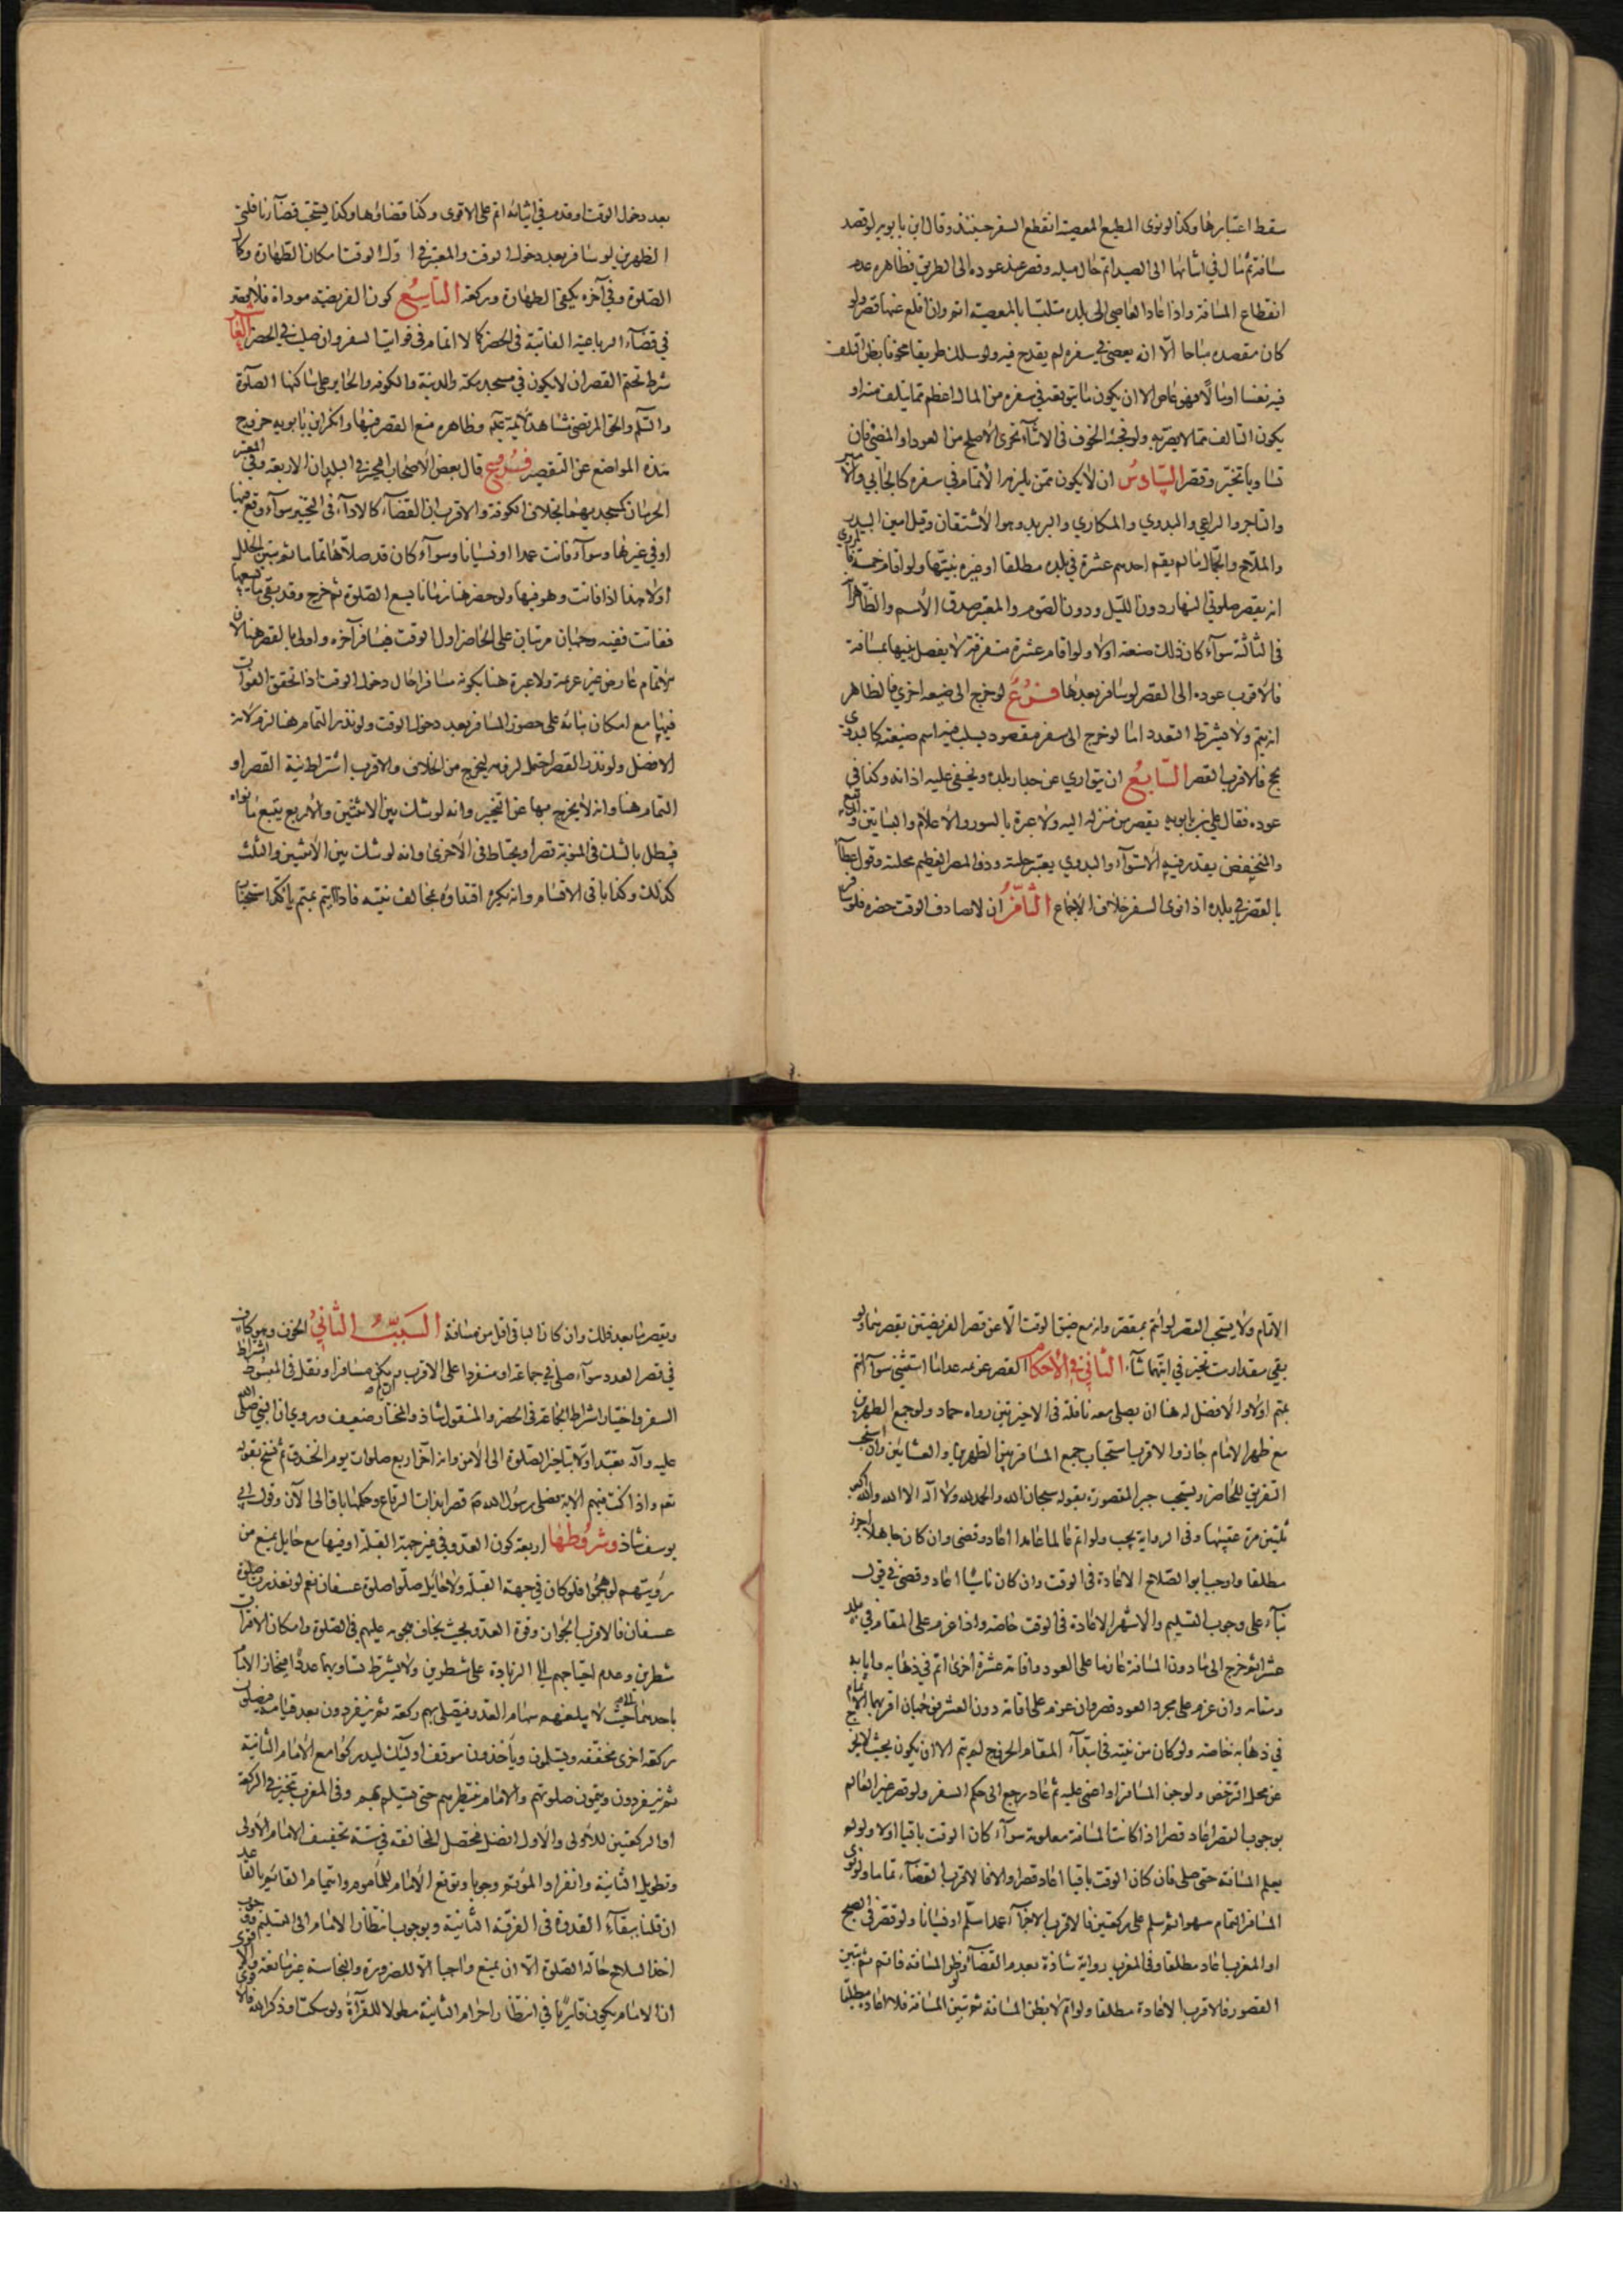 سقط اعتبارها وكذا لو نوى المطيع المعصية انقطع السفر حينئذ وقال ابن بابويه لو قصد
مسافة ثم مال في اثنائها الى الصيد اتم حال ميله وقصر عند عوده الى الطريق فظاهره عدم
انقطاع المسافة واذا عاد العاصي الى بلده متلبسا بالمعصية اتم وان اقلع عنها قصر ولو
كان مقصده مباحا الا انه يعصي في سفره لم يقدح فيه ولو سلك طريقا مخوفا يظن التلف
فيه نفسا او مالا فهو عاص الا ان يكون ما يتوقعه في سفره من المال اعظم مما يتلف منه او
يكون التالف مما لا يضر به ولو فجئه الخوف في الاثناء تحرى الاصلح من العود او المضي فان
تساويا تخير وقصر السادس ان لا يكون ممن يلزمه الاتمام في سفره كالجابي والامير
والتاجر والراعي والبدوي والمكاري والبريد وهو الاشتقان وقيل امين البيدر
والملاح والجمال ما لم يقم احدهم عشرة في بلده مطلقا او غيره بنيتها ولو اقام خمسة فالمروي
انه يقصر صلوتي النهار دون الليل ودون الصوم والمعتبر صدق الاسم والظاهر انه
في الثالثة سواء كان ذلك صنعته اولا ولو اقام عشرة متفرقة لا يفصل بينها بمسافة
فالاقرب عوده الى القصر لو سافر بعدها فرع لو خرج الى ضيعة اخرى فالظاهر
انه يتم ولا يشترط التعدد اما لو خرج الى سفر مقصود يسلب فيه اسم صنعته كالبدوي
يحج فالاقرب القصر السابع ان يتوارى عن جدار بلده ويخفى عليه اذانه وكذا في
عوده فقال علي بن بابويه يقصر من منزله اليه ولا عبرة بالسور والاعلام والبساتين والمرتفع
والمنخفض يقدر فيه الاستواء والبدوي يعتبر حلته وذو المصر العظيم محلته وقول عطاء
بالقصر في بلده اذا نوى السفر خلاف الاجماع الثامن ان لا يصادف الوقت حضره فلو سافر
بعد دخول الوقت او قدم في اثنائه اتم على الاقوى وكذا قضاؤها وكذا يستحب قضاء نافلتي
الظهرين لو سافر بعد دخول الوقت والمعتبر في اول الوقت امكان الطهارة وكمال
الصلوة وفي آخره يكفي الطهارة وركعة التاسع كون الفريضة موداة فلا يقصر
في قضاء الرباعية الفائتة في الحضر كما لا اتمام في فوائت السفر وان صليت في الحضر العاشر
شرط تحتم القصر ان لا يكون في مسجد مكة والمدينة والكوفة والحاير على ساكنها الصلوة
والسلم والحق المرتضى مشاهد الائمة عليهم وظاهره منع القصر فيها وانكر ابن بابويه خروج
هذه المواضع عن التقصير فروع قال بعض الاصحاب المخير في البلدان الاربعة وفي المعتبر
الحرمان كمسجديهما بخلاف الكوفة والاقرب ان القضاء كالاداء في التخيير سواء وقع فيها
او في غيرها وسواء فاتت عمدا او نسيانا وسواء كان قد صلاها تماما ثم تبين الخلل
اولا هذا اذا فاتت وهو فيها ولو حضر هنا زمانا يسع الصلوة ثم خرج وقد بقي ما يسعها
ففاتت ففيه وجهان مرتبان على الحاضر اول الوقت فسافر آخره واولى بالقصر هنا لان
الاتمام عارض غير عزيمة ولا عبرة هنا بكونه مسافرا حال دخول الوقت اذا تحقق الفوات
فيها مع امكان بنائه على حضور المسافر بعد دخول الوقت ولو نذر التمام هنا لزم لانه
الافضل ولو نذر القصر احتمل لزومه ليخرج من الخلاف والاقرب اشتراط نية القصر او
التمام هنا وانه لا يخرج بها عن التخيير وانه لو شك بين الاثنتين والاربع يتبع ما نواه
فيبطل بالشك في المنوية قصرا ويحتاط في الاخرى وانه لو شك بين الاثنتين والثلث
كذلك وكذا باقي الاقسام وانه يكره اقتداؤه بمخالف نيته فاذا ايتم بمتم تاكد استحباب
الاتمام ولا يستحب القصر لو ائتم بمقصر وانه مع ضيق الوقت الا عن قصر الفريضتين يقصرهما ولو
بقي مقدار ست تخير في ايتهما شاء الثاني في الاحكام القصر عزيمة عدا ما استثني سواء ائتم
بمتم اولا والافضل له هنا ان يصلي معه نافلة في الاخيرتين رواه حماد ولو جمع الظهرين
مع ظهر الامام جاز والاقرب استحباب جمع المسافر بين الظهرين والعشائين وان استحب
التفريق للحاضر ويستحب جبر المقصورة بقوله سبحان الله والحمد لله ولا اله الا الله والله اكبر
ثلثين مرة عقيبها وفي الرواية يجب ولو اتم عالما عامدا اعاد وقضى وان كان جاهلا اجزء
مطلقا واوجب ابو الصلاح الاعادة في الوقت وان كان ناسيا اعاد وقضى في قول
بناء على وجوب التسليم والاشهر الاعادة في الوقت خاصة واذا عزم على المقام في بلد
عشرا ثم خرج الى ما دون المسافة عازما على العود واقامة عشرة اخرى اتم في ذهابه وايابه
ومقامه وان عزم على مجرد العود قصر وان عزم على اقامة دون العشر فوجهان اقربهما الاتمام
في ذهابه خاصة ولو كان من نيته في ابتداء المقام الخروج لم يتم الا ان يكون بحيث لا يخرج
عن محل الترخص ولو جن المسافر او اغمي عليه ثم عاد رجع الى حكم السفر ولو قصر غير العالم
بوجوب القصر اعاد قصرا اذا كانت المسافة معلومة سواء كان الوقت باقيا اولا ولو لم
يعلم المسافة حتى صلى فان كان الوقت باقيا اعاد قصرا والا فالاقرب القضاء تماما ولو نوى
المسافر التمام سهوا ثم سلم على ركعتين فالاقرب الاجزاء عمدا سلم او نسيانا ولو قصر في الصبح
او المغرب اعاد مطلقا وفي المغرب رواية شاذة بعدم القضاء ولو ظن المسافة فاتم ثم تبين
القصور فالاقرب الاعادة مطلقا ولو اتم لا بظن المسافة ثم تبين المسافة فلا اعادة مطلقا
ويقصر ما بعد ذلك وان كان الباقي اقل من مسافة السبب الثاني الخوف وهو كاف
في قصر العدد سواء صلى في جماعة او منفردا على الاقرب وان لم يكن مسافرا ونقل في المبسوط اشتراط
السفر واختيار اشتراط الجماعة في الحضر والمنقول شاذ والمختار ضعيف وروي ان النبي صلى الله
عليه وآله تعبد اولا بتاخير الصلوة الى الامن وانه اخر اربع صلوات يوم الخندق ثم نسخ بقوله
تعم واذا كنت فيهم الاية فصلى رسول الله ص قصرا بذات الرقاع وحكمها باق الى الآن وقول ابي
يوسف شاذ وشروطها اربعة كون العدو في غير جهة القبلة او فيها مع حايل يمنع من
رؤيتهم لو هجموا فلو كان في جهة القبلة ولا حايل صلوا صلوة عسفان نعم لو تعذرت صلوة
عسفان فالاقرب الجواز وقوة العدو بحيث يخاف هجومه عليهم في الصلوة وامكان الافتراق
شطرين وعدم احتياجهم الى الزيادة على شطرين ولا يشترط تساويهما عددا فينحاز الامام
باحدهما حيث لا يبلغهم سهام العدو فيصلي بهم ركعة ثم ينفردون بعد قيامه فيصلون
ركعة اخرى مخففة ويسلمون ويأخذون موقف اوليك ليدركوا مع الامام الثانية
ثم ينفردون ويتمون صلوتهم والامام ينتظرهم حتى يسلم بهم وفي المغرب يتخير في الركعة
او الركعتين للاولى والاول افضل فتحصل المخالفة في ستة تخفيف الامام الاولى
وتطويل الثانية وانفراد المؤتم وجوبا وتوقع الامام للمأموم وايتمام القائم بالقاعد
ان قلنا ببقاء القدوة في الفرقة الثانية ووجوب انتظار الامام الى التسليم ووجوب
اخذ السلاح حالة الصلوة الا ان يمنع واجبا الا للضرورة والنجاسة غير مانعة والاقوى
ان الامام يكون قارئا في انتظار احرام الثانية مطولا للقرآة ولو سكت او ذكر الله فالاقوى